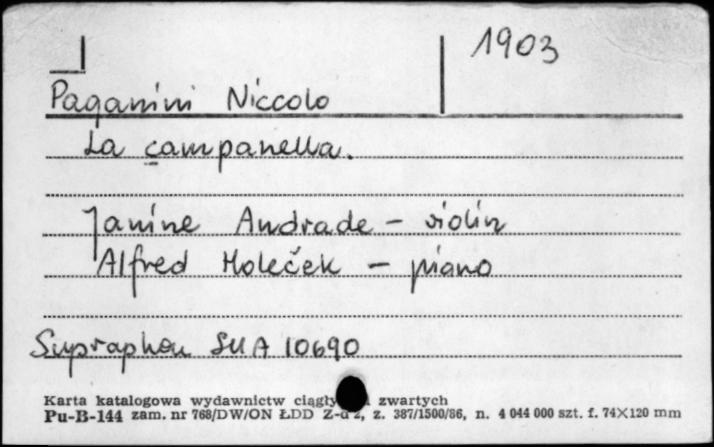 1903
Paganini Niccolo
La campanella.
Janine Andrade - violin
Alfred Holeček - piano
Supraphon SUA 10690
Karta katalogowa wydawnictw zwartych
Pu-B-144 zam. nr 768/DW/ON ŁDD z. 387/1500/86, n. 4 044 000 szt. f. 74×120 mm